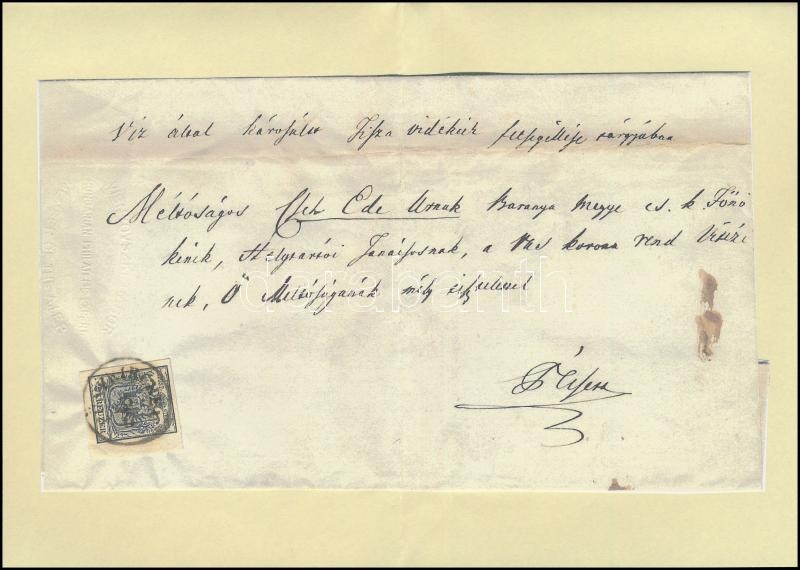 Víz által károsúlt Tisza vidékiek felsegéllése tárgyában
Méltóságos Cseh Ede Urnak Baranya Megye cs. k. Fönö
kének, Helytartói Tanácsosnak, a Vas korona rend Vitézé
nek, Ő Méltóságának mély tisztelettel
Pécsen
darabanth